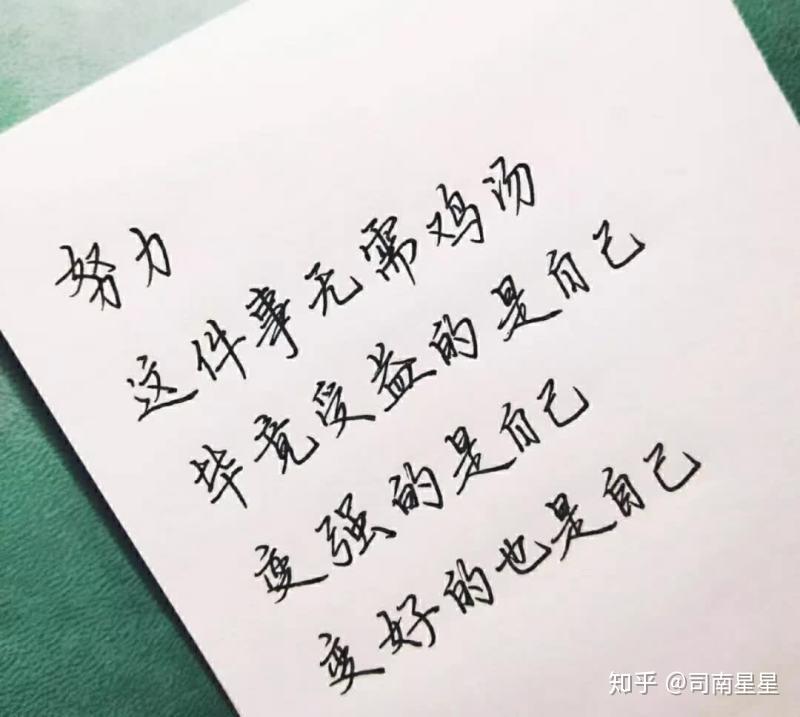 努力
这件事无需鸡汤
毕竟受益的是自己
变强的是自己
变好的也是自己
知乎 @司南星星